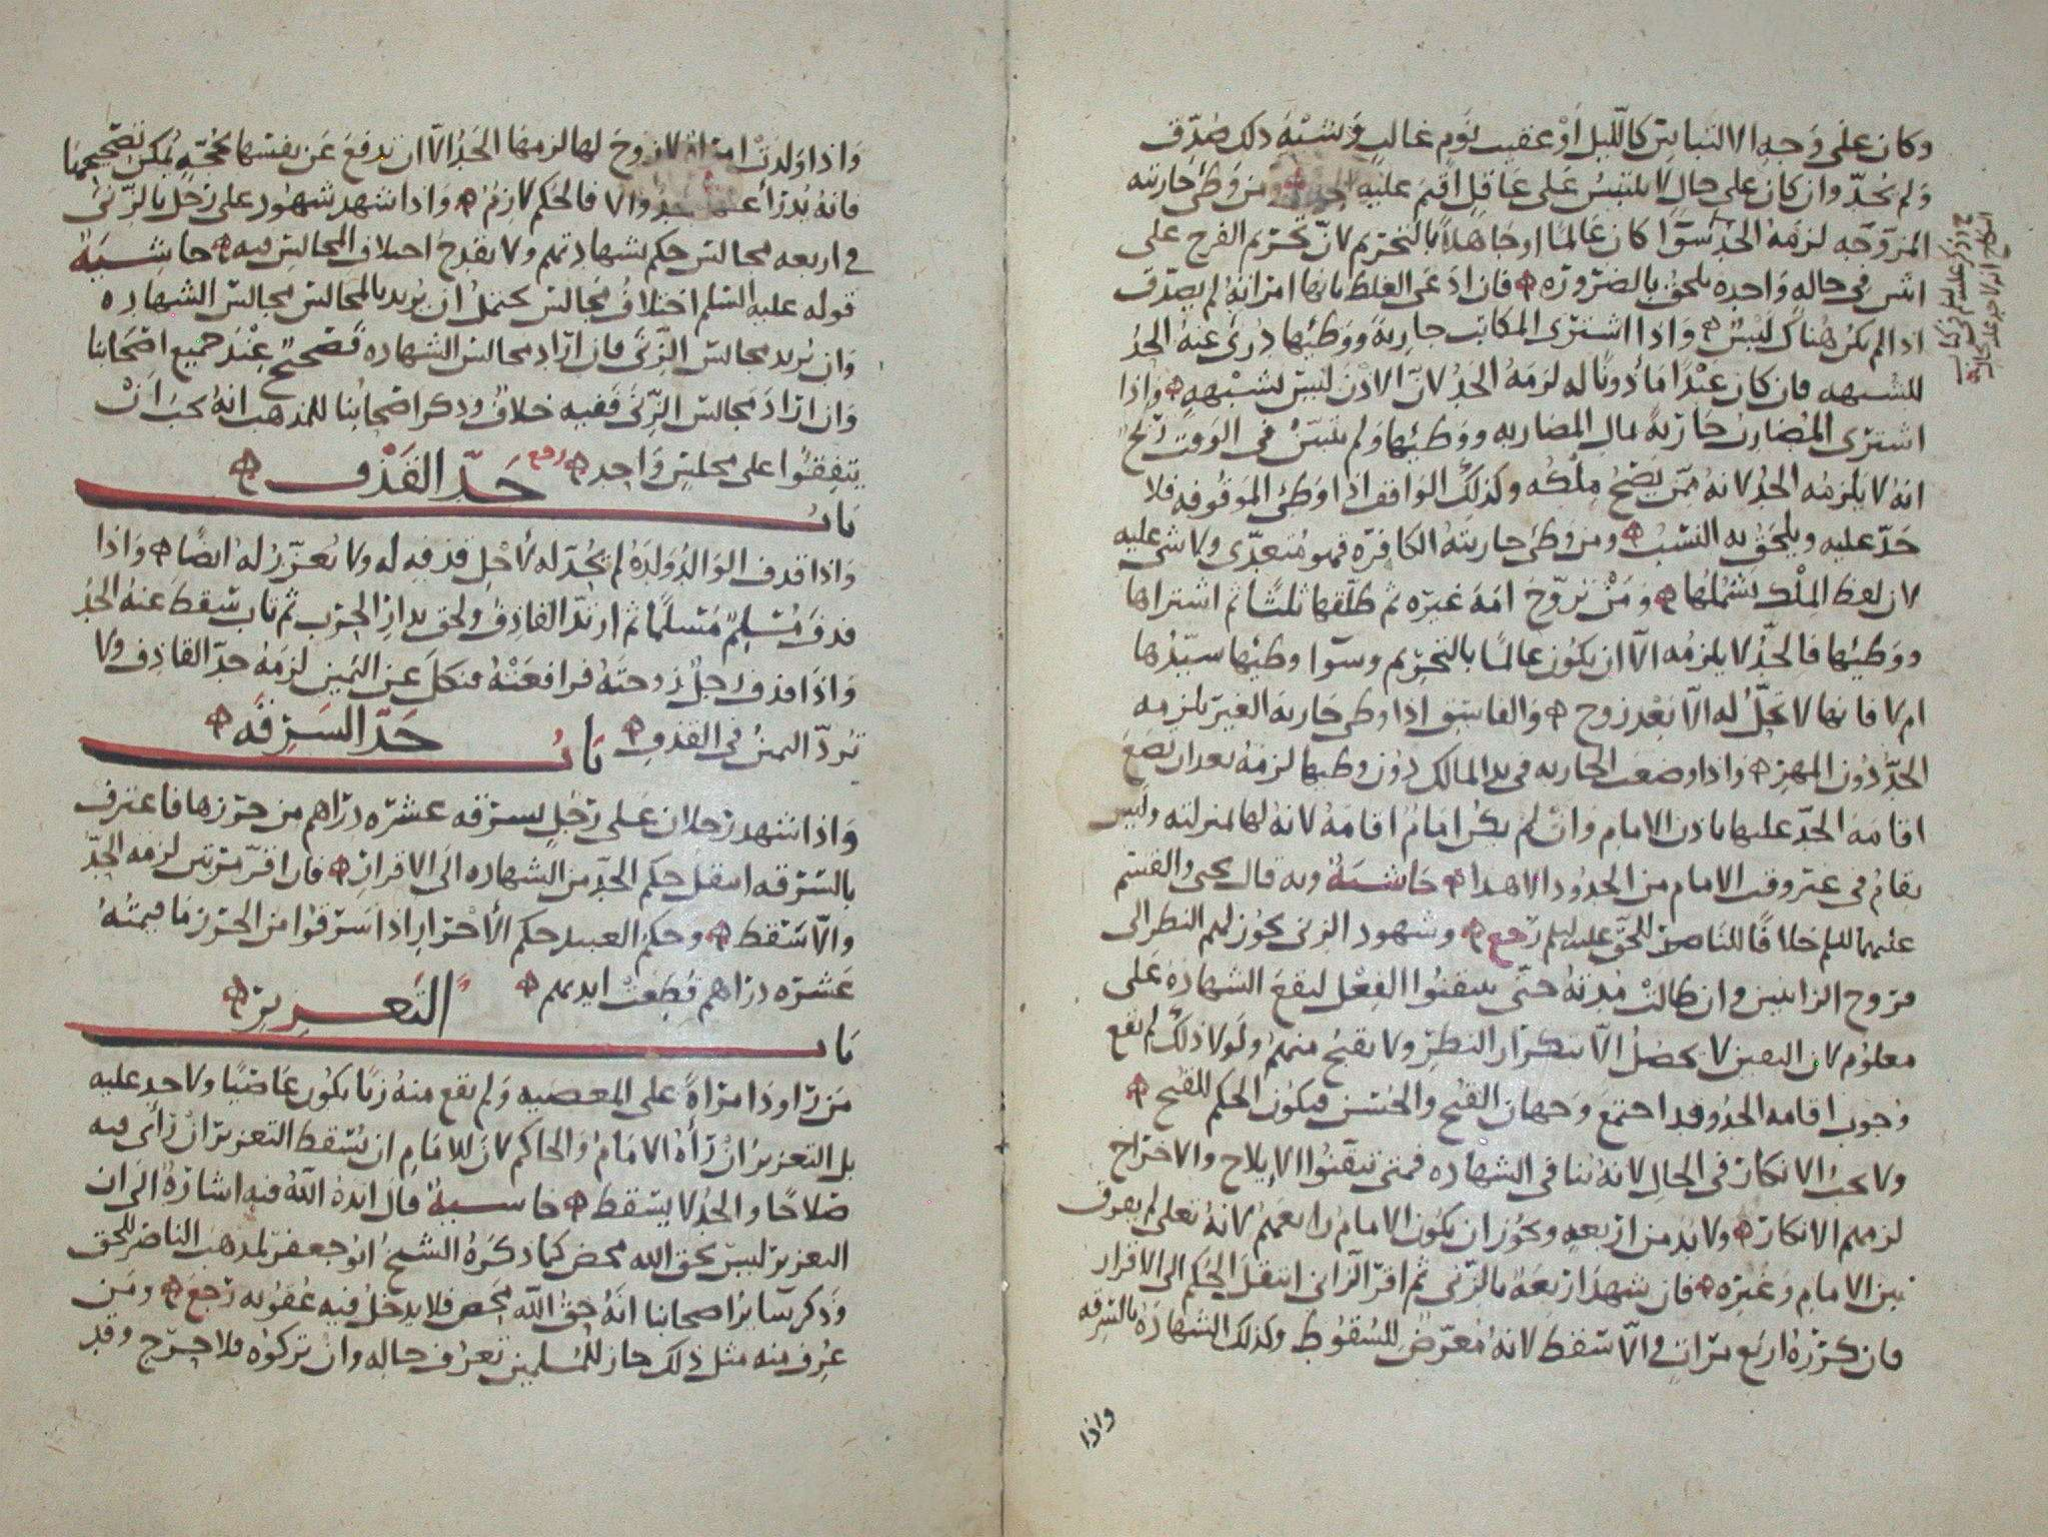 وكان على وجه الالتباس كالليل أو عقيب نوم غالب وشبه ذلك صدق
ولم يحد وان كان على حال لا يلتبس على عاقل اقيم عليه الحد ومن وطئ جاريته
المزوجه لزمه الحد سوا كان عالما او جاهلا بالتحريم لان تحريم الفرج على
اثنين في حاله واحده يلحق بالضروره فان ادعى الغلط بانها امراته لم يصدق
اذا لم يكن هناك لبس واذا اشترى المكاتب جارية ووطئها درئ عنه الحد
للشبهه فان كان عبدا مأذونا له لزمه الحد لان الاذن ليس بشبهه واذا
اشترى المضارب جارية بمال المضاربه ووطئها ولم يتبين في الوقت ربح
انه لا يلزمه الحد لانه ممن يصح ملكه وكذلك الواقف اذا وطئ الموقوفه فلا
حد عليه ويلحق به النسب ومن وطئ جاريته الكافره فهو متعدى ولا شى عليه
لان لفظ الملك يشملها ومن تزوج امة غيره ثم طلقها ثلثا ثم اشتراها
ووطيها فالحد لا يلزمه الا ان يكون عالما بالتحريم وسوا وطيها سيدها
ام لا فانها لا تحل له الا بعد زوج والفاسق اذا وطى جارية الغير يلزمه
الحد دون المهر واذا وضعت الجاريه في يد المالك دون وطيها لزمه بعد ان تضع
اقامة الحد عليها باذن الامام وان لم يكن امام اقامه لانه لها بمنزلته وليس
يقام في غير وقت الامام من الحدود الا هذا حاشية وبه قال يحيى والقسم
عليهما السلم خلافا للناصر للحق عليه السلم رجع وشهود الزنى يجوز لهم النظر الى
فروج الزانيين وان طالت مدته حتى يتيقنوا الفعل ليقع الشهادة على
معلوم لان اليقين لا يحصل الا بتكرار النظر ولا يقبح منهم ولولا ذلك لم يقع
وجوب اقامه الحد وقد اجتمع وجهان القبح والحسن فيكون الحكم للقبح
ولا يجب الانكار في الحال لانه ينافي الشهاده فمتى تيقنوا الايلاح والاخراج
لزمهم الانكار ولا بد من اربعه ويجوز ان يكون الامام رابعهم لانه تعلى لم يفرق
بين الامام وغيره فان شهد اربعة بالزنى ثم اقر الزانى انتقل الحكم الى الاقرار
فان كرره اربع مرات والا سقط لانه معرض للسقوط وكذلك الشهادة بالسرقه
واذا
واذا ولدت امراة لا زوج لها لزمها الحد الا ان تدفع عن نفسها بحجه يمكن تصحيحها
فانه يدرأ عنها الحد والا فالحكم لازم واذا شهد شهود على رجل بالزنى
في اربعه مجالس حكم بشهادتهم ولا يقدح اختلاف المجالس فيه حاشية
قوله عليه السلم اختلاف مجالس يحتمل ان يريد بالمجالس مجالس الشهاده
وان يريد مجالس الزنى فان اراد مجالس الشهاده فصحيح عند جميع اصحابنا
وان اراد مجالس الزنى ففيه خلاف وذكر اصحابنا للمذهب انه يجب ان
يتفقوا على مجلس واحد رجع
باب حد القذف
واذا قذف الوالد ولده لم يحد له لأجل قذفه له ولا يعزر له ايضا واذا
قذف مسلم مسلما ثم ارتد القاذف ولحق بدار الحرب ثم تاب سقط عنه الحد
واذا قذف رجل زوجته فرافعته فنكل عن اليمين لزمه حد القاذف ولا
ترد اليمين في القذف باب حد السرقه
واذا شهد رجلان على رجل بسرقه عشره دراهم من حرزها فاعترف
بالسرقه انتقل حكم الحد من الشهاده الى الاقرار فان اقر مرتين لزمه الحد
والا سقط وحكم العبيد حكم الأحرار اذا سرقوا من الحرز ما قيمته
عشره دراهم قطعت ايديهم
باب التعزير
من راود امراة على المعصيه ولم يقع منه زنا يكون عاصيا ولا حد عليه
بل التعزير ان رأه الامام والحاكم لان للامام ان يسقط التعزير ان رأى فيه
صلاحا والحد لا يسقط حاشية قال ايده الله فيه اشارة الى ان
التعزير ليس بحق الله محض كما ذكره الشيخ ابو جعفر لمذهب الناصر للحق
وذكر سائر اصحابنا انه حق الله محض فلا يدخل فيه عفو به رجع ومن
عرف منه مثل ذلك جاز للمسلمين تعرف حاله وان تركوه فلا حرج وقد